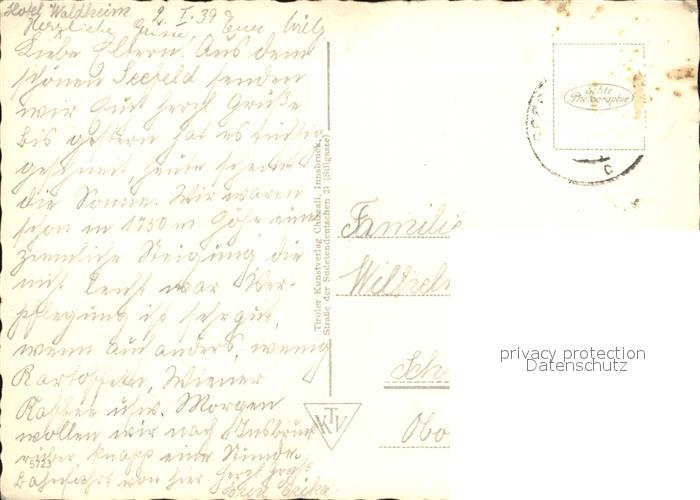 Hotel Waldheim 2. I. 39
Herzliche Grüße, Euer Willy
Liebe Eltern! Aus dem
schönen Seefeld senden
wir Euch herzl. Grüße
bis gestern hat es richtig
geschneit, heute scheint
die Sonne. Wir waren
schon in 1750 m. Höhe eine
ziemliche Steigung die
nicht leicht war. Ver-
pflegung ist sehr gut,
wenn auch anders, wenig
Kartoffeln, Wiener
Kaffee usw. Morgen
wollen wir nach Insbruck
rüber knapp eine Stunde
Bahnfahrt von hier. herzl. Grüße
Eure Erika.
5723
Tiroler Kunstverlag Chizzali, Innsbruck,
Straße der Sudetendeutschen 21 (Sillgasse)
KTV
Echte
Photographie
Familie
Wilhelm
Sch
Obo
privacy protection
Datenschutz